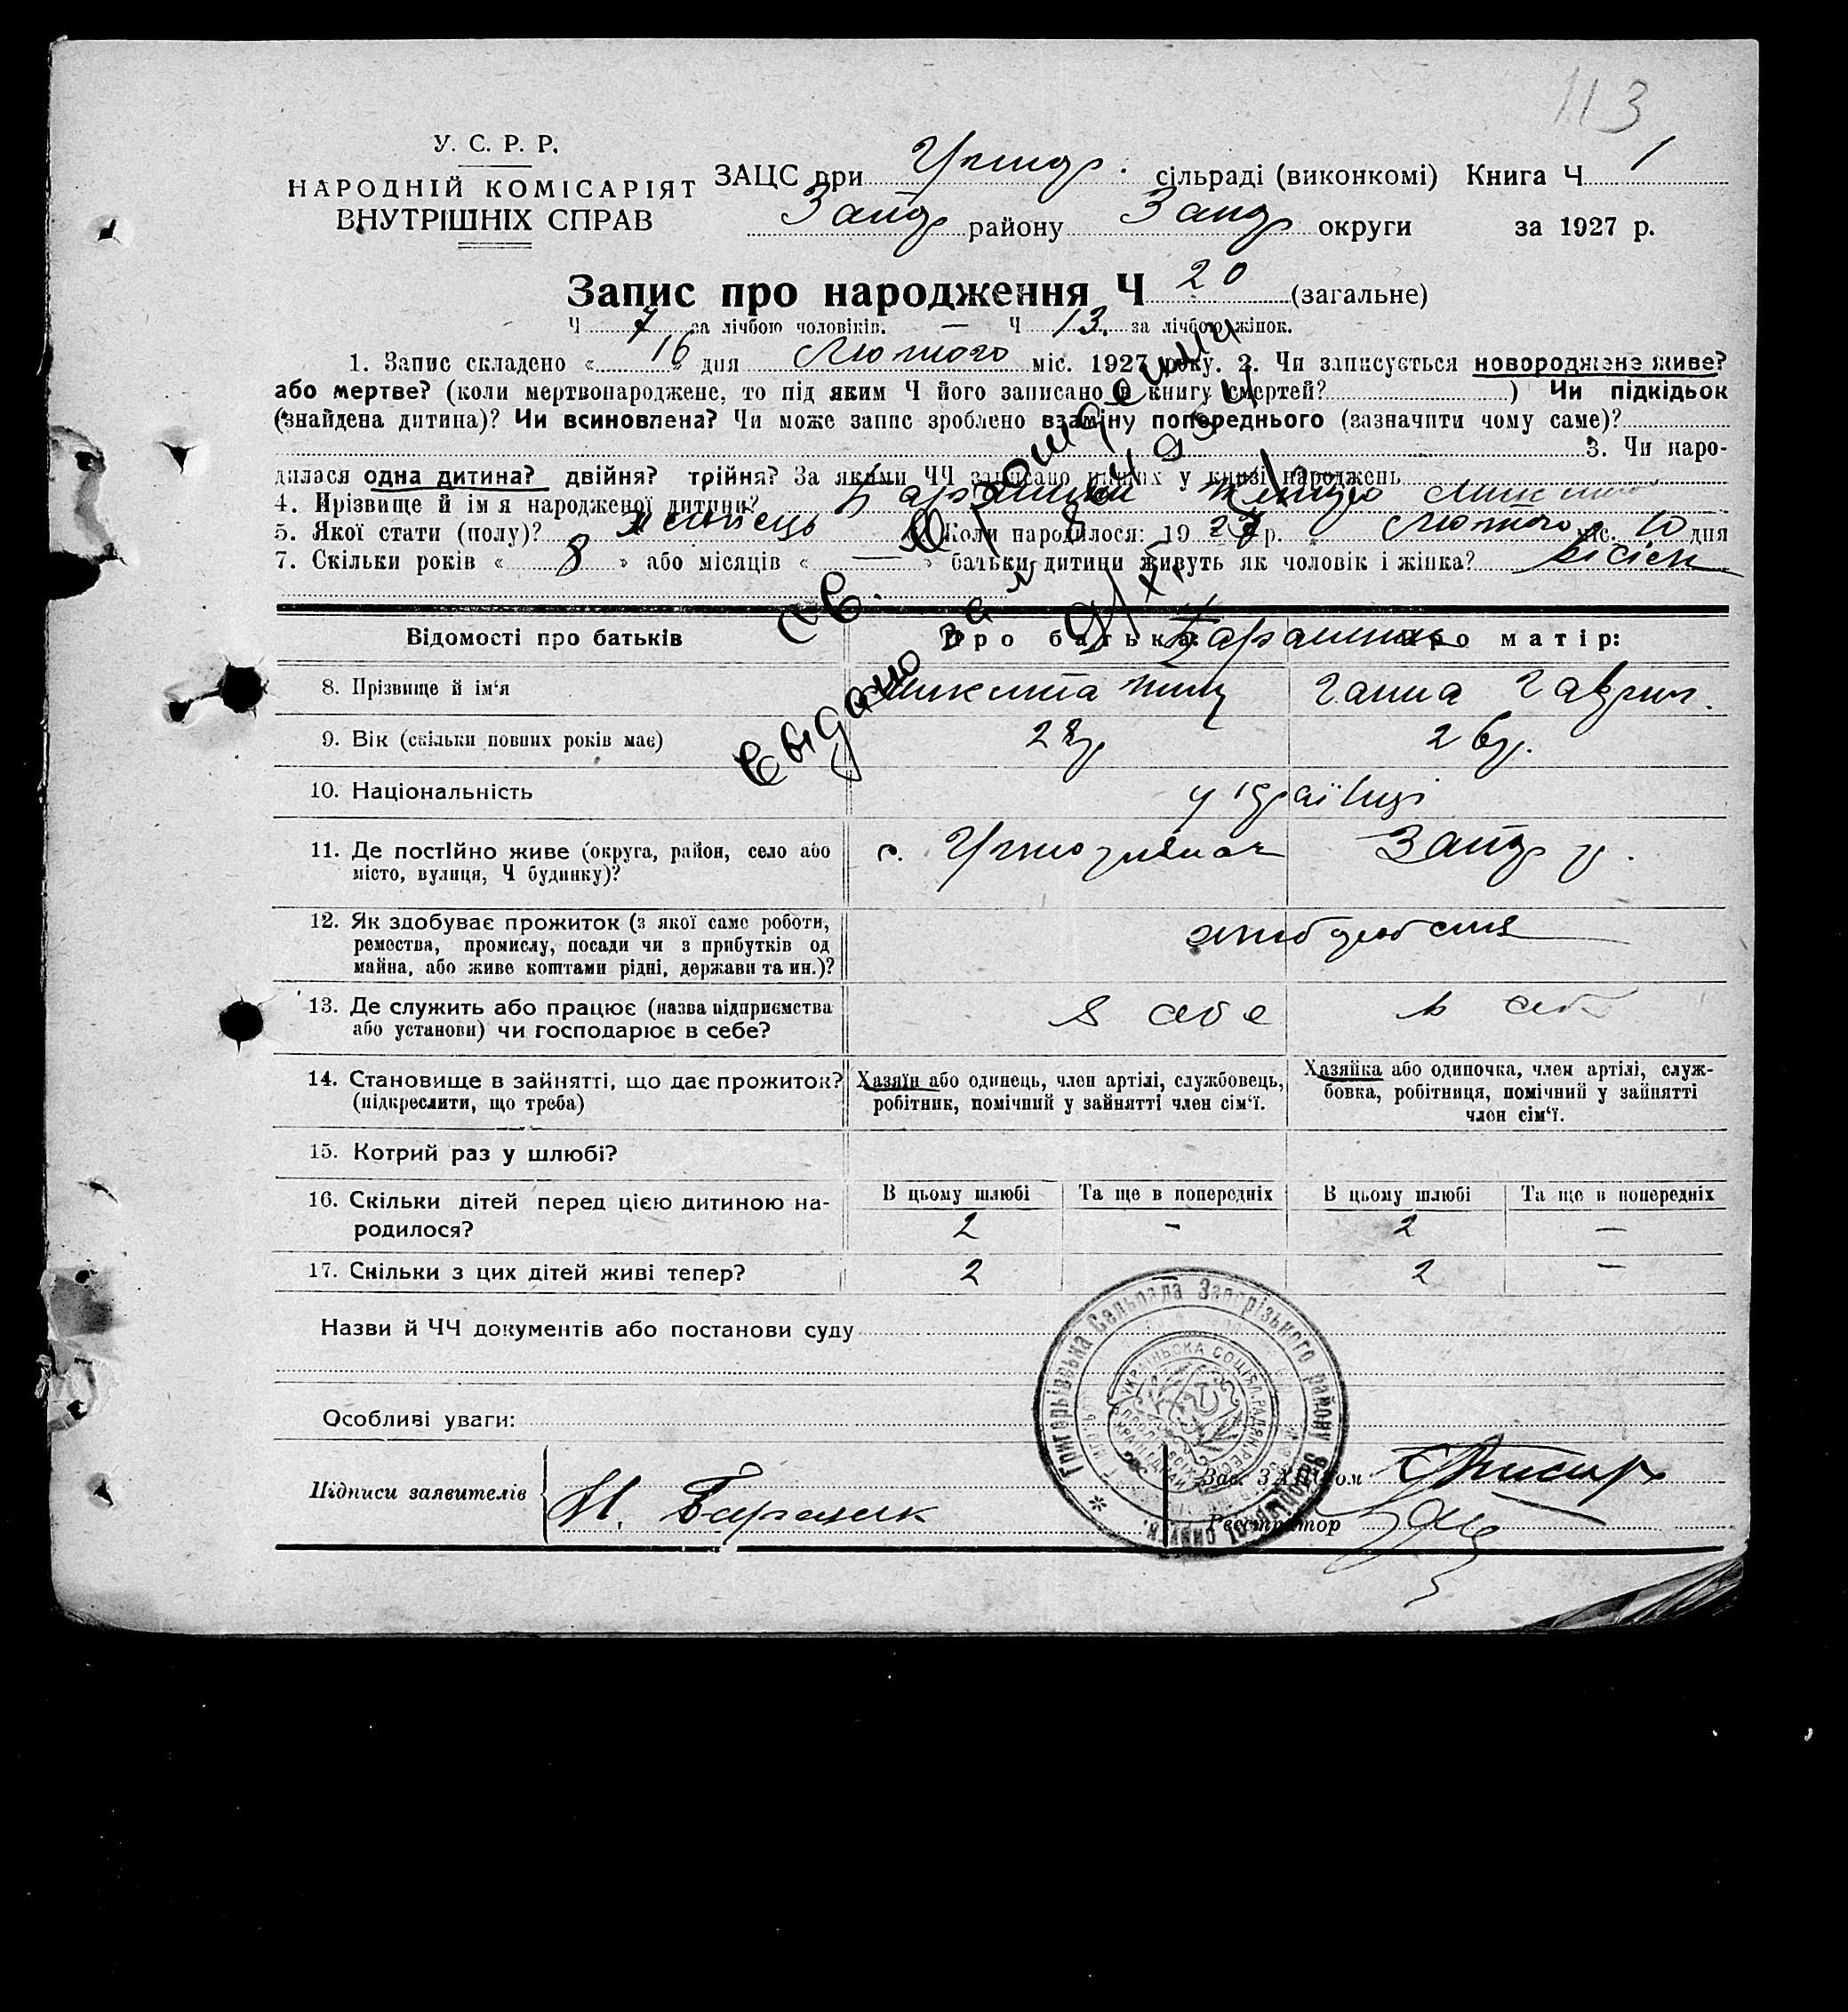 113
У. С. Р. Р.
НАРОДНІЙ КОМІСАРІЯТ
ВНУТРІШНІХ СПРАВ
ЗАЦС при сільраді (виконкомі) Книга Ч 1
Запор району Запор округи за 1927 р.
Запис про народження Ч 20 (загальне)
Ч 7 за лічбою чоловіків. — Ч 13. за лічбою жінок.
1. Запис складено « 16 » дня Лютого міс. 1927 року. 2. Чи записується новороджене живе?
або мертве? (коли мертвонароджене, то під яким Ч його записано в книгу смертей? ) Чи підкідьок
(знайдена дитина)? Чи всиновлена? Чи може запис зроблено взаміну попереднього (зазначити чому саме)?
3. Чи наро-
дилася одна дитина? двійня? трійня? За якими ЧЧ записано інших у книзі народжень
4. Прізвище й ім'я народженої дитини?
5. Якої стати (полу)? хлопець 6. Коли народилося: 19 27 р. Лютого міс. 10 дня
7. Скільки років « 8 » або місяців « — » батьки дитини живуть як чоловік і жінка? вісім
Видано
Відомості про батьків Про батька: Про матір:
8. Прізвище й ім'я Микита Ганна Гаврил.
9. Вік (скільки повних років має) 28 р 26 р.
10. Національність українці
11. Де постійно живе (округа, район, село або
місто, вулиця, Ч будинку)?
с. Запор
12. Як здобуває прожиток (з якої саме роботи,
ремества, промислу, посади чи з прибутків од
майна, або живе коштами рідні, держави та ин.)?
хліборобство
13. Де служить або працює (назва підприємства
або установи) чи господарює в себе?
в себе в себе
14. Становище в зайнятті, що дає прожиток?
(підкреслити, що треба)
Хазяїн або одинець, член артілі, службовець,
робітник, помічний у зайнятті член сім'ї.
Хазяйка або одиночка, член артілі, служ-
бовка, робітниця, помічний у зайнятті
член сім'ї.
15. Котрий раз у шлюбі?
16. Скільки дітей перед цією дитиною на-
родилося?
В цьому шлюбі Та ще в попередніх В цьому шлюбі Та ще в попередніх
2 - 2 —
17. Скільки з цих дітей живі тепер? 2 2 —
Назви й ЧЧ документів або постанови суду
Особливі уваги:
Григорьівська Сельрада Запорізького району Запорізької округи.
Підписи заявителів
Зав. ЗАЦСом
Реєстратор